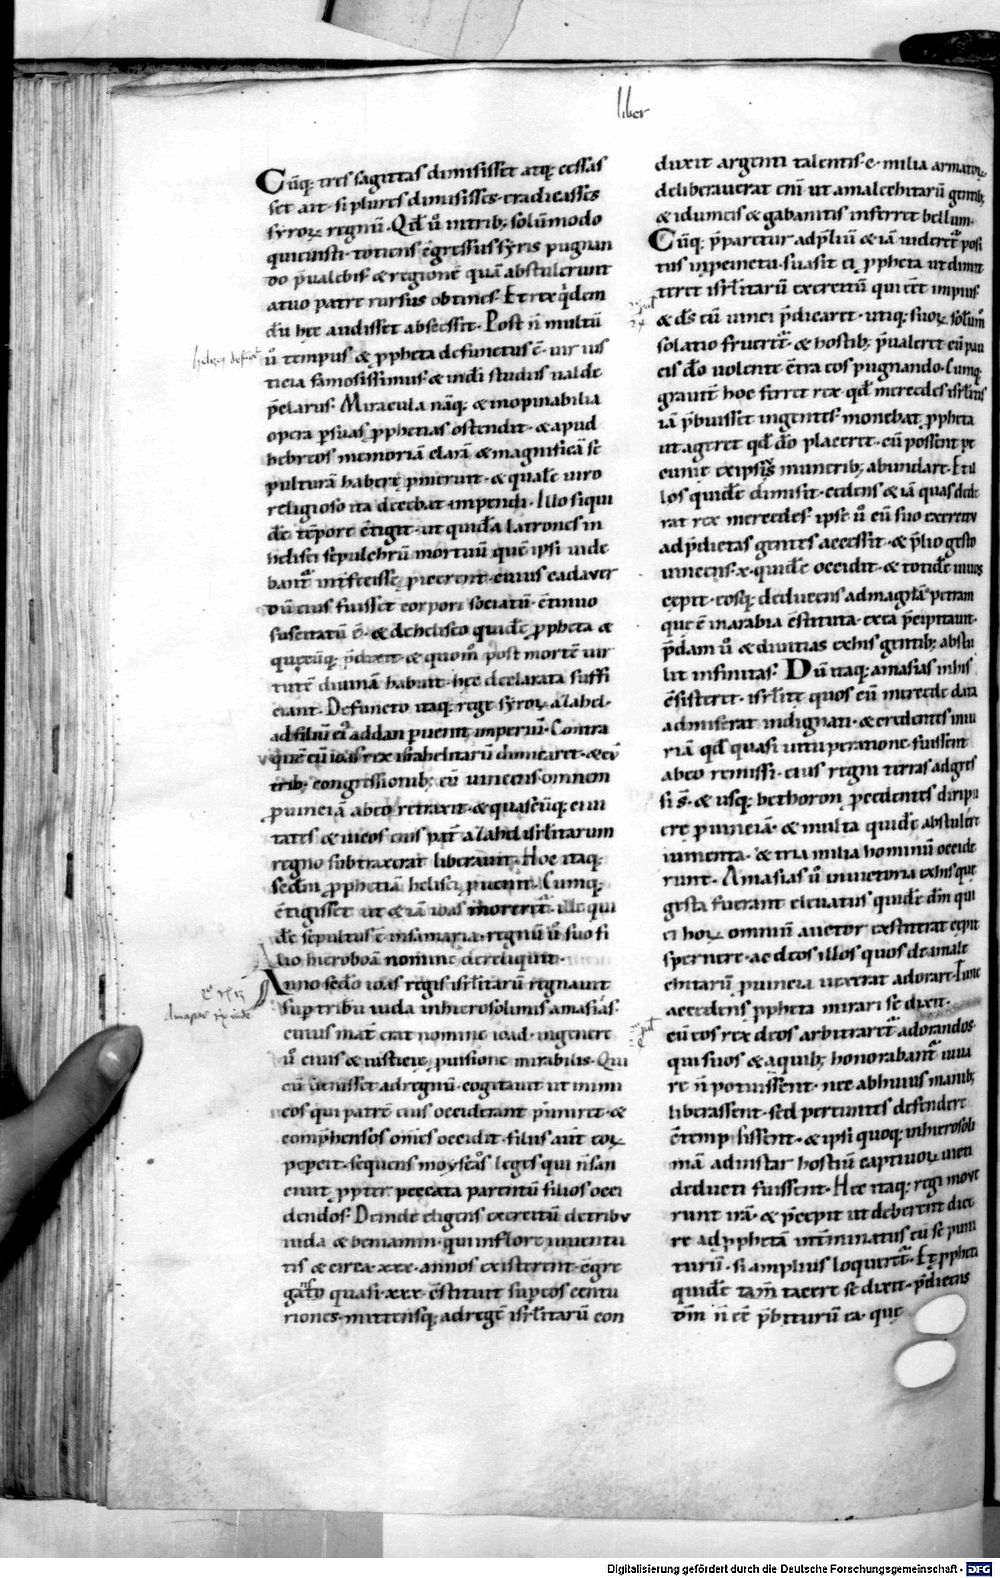 liber
Cūq; tres sagittas dimisisset atq; cessas
set ait. si plures dimisisses. eradicasses
syroꝝ regnū. Qd̄ ů intrib; solūmodo
quieuisti. totiens egressus syris pugnan
do p̄ualebis & regionē quā abstulerunt
atuo patre rursus obtines. Et rex q̇dem
dū hec audisset abscessit. Post ñ multū
ů tempus & ꝓpheta defunctus ē. uir ius
ticia famosissimus & indi studus ualde
p̄clarus. Miracula nāq; & inopinabilia
opera ꝑsuas ꝓphetias ostendit. & apud
hebreos memoriā clarā & magnificā se
pulturā habere ꝓmeruit. & quale uiro
religioso ita decebat impendi. Illo siqui
dē tēpore ctigit. ut quidā latrones in
helisei sepulchrū mortuū quē ipsi uide
bant interfecisse ꝓiecerent. cuius cadauer
dū eius fuisset corpori sociatū. ctinuo
suscitatū ē. & deheliseo quidē ꝓpheta &
quecūq; p̄dixit. & quom̄ post mortē uir
tutē diuinā habuit. hec declarata suffi
ciant. Defuncto itaq; rege syroꝝ azahel.
adfiliū ei addan ꝑuenit imperiū. Contra
quē cū ioas rex israhelitarū dimicaret. & eū
trib; congressionib; eū uincens omnem
ꝓuinciā abeo retraxit. & quascūq; ciui
tates & uicos eius pat̄ azahel isrl̄itarum
regno subtraxerat liberauit. Hoc itaq;
scdm̄ ꝓphetiā helisei ꝓuenit. Cumq;
ctigisset ut & iā ioas moreret. ille qui
dē sepultus ē insamaria. regnū ů suo fi
lio hieroboā nomine dereliquit.
Anno scd̄o ioas regis isrl̄itarū regnauit
suꝑ tribu iuda inhierosolimis amasias.
cuius mat̄ erat nomine ioad. ingenere
ů ciuis & iusticie ꝓuisione mirabilis. Qui
cū uenisset adregnū. cogitauit ut inimi
cos qui patrē eius occiderant puniret. &
comp̄hensos om̄es occidit. filius aut̄ eoꝝ
peꝑcit. sequens moyseos leges qui ñ san
ciuit ꝓpter peccata parentū filios occi
dendos. Deinde eligens exercitū detribu
iuda & beniamin. qui inflore iuuentu
tis & circa .xxx. annos existerent. cgre
gatis quasi .xxx. cstituit suꝑ eos centu
riones. mittensq; adregē isrl̄itarū con
duxit argenti talentis .c. milia armatoꝝ.
deliberauerat eni ut amalechitarū gentib;
& idumeis & gabanitis inferret bellum.
Cūq; p̄pararetur ad p̄liū & iā uideret̄ posi
tus inpcinctu. suasit ei ꝓpheta ut dimit
teret isrl̄itarū exercitū qui eēt impius.
& ds̄ eū uinci p̄dicaret. utiq; suoꝝ solūm
solatio frueret. & hostib; p̄ualeret cū pau
cis dō uolente contra eos pugnando. Cumq;
grauit hoc ferret rex. qd̄ mercedes isrl̄itis
iā p̄buisset ingentes. monebat ꝓpheta
ut ageret qd̄ dō placeret. cū possent pe
cunie exipsius munerib; abundare. Et il
los quidē dimisit. cedens & iā quas dede
rat rex mercedes. ipse ů cū suo exercitu
adp̄dictas gentes accessit. & p̄lio gesto
uincens .x. quidē occidit. & totidē uiuos
cepit. eosq; deducens admagnā petram
que ē inarabia cstituta. exea p̄cipitauit.
p̄dam ů & diuitias exhis gentib; abstu
lit infinitas. Dū itaq; amasias inhis
csisteret. isrl̄ite quos cū mercede data
admiserat indignati. & credentes iniu
riā qd̄ quasi uituperatione fuissent
abeo remissi. eius regni terras adgres
si s̄. & usq; bethoron ꝓcedentes diripu
ere ꝓuinciā. & multa quidē abstulere
iumenta. & tria milia hominū occide
runt. Amasias ů inuictoria exhis que
gesta fuerant eleuatus quidē dm̄ qui
ei hoꝝ omniū auctor extiterat cepit
spernere. ac deos illos quos de amale
chitarū ꝓuincia uexerat adorare. Tunc
accedens ꝓpheta mirari se dixit.
cū eos rex deos arbitraret̄ adorandos.
qui suos & aquib; honorabant̄ iuua
re ñ potuissent. nec abhuius manib;
liberassent. sed pereuntes defendere
ctempsissent. & ipsi quoq; inhierosoli
mā adinstar hostiū captiuoꝝ uicti
deducti fuissent. Hec itaq; regi moue
runt irā. & p̄cepit ut deberent dice
re adꝓphetā intminatus eū se puni
turū. si amplius loqueret̄. Et ꝓpheta
quidē tam̄ tacere se dixit. p̄dicens
dm̄ ñ eē p̄biturū ea. que
Digitalisierung gefördert durch die Deutsche Forschungsgemeinschaft - DFG